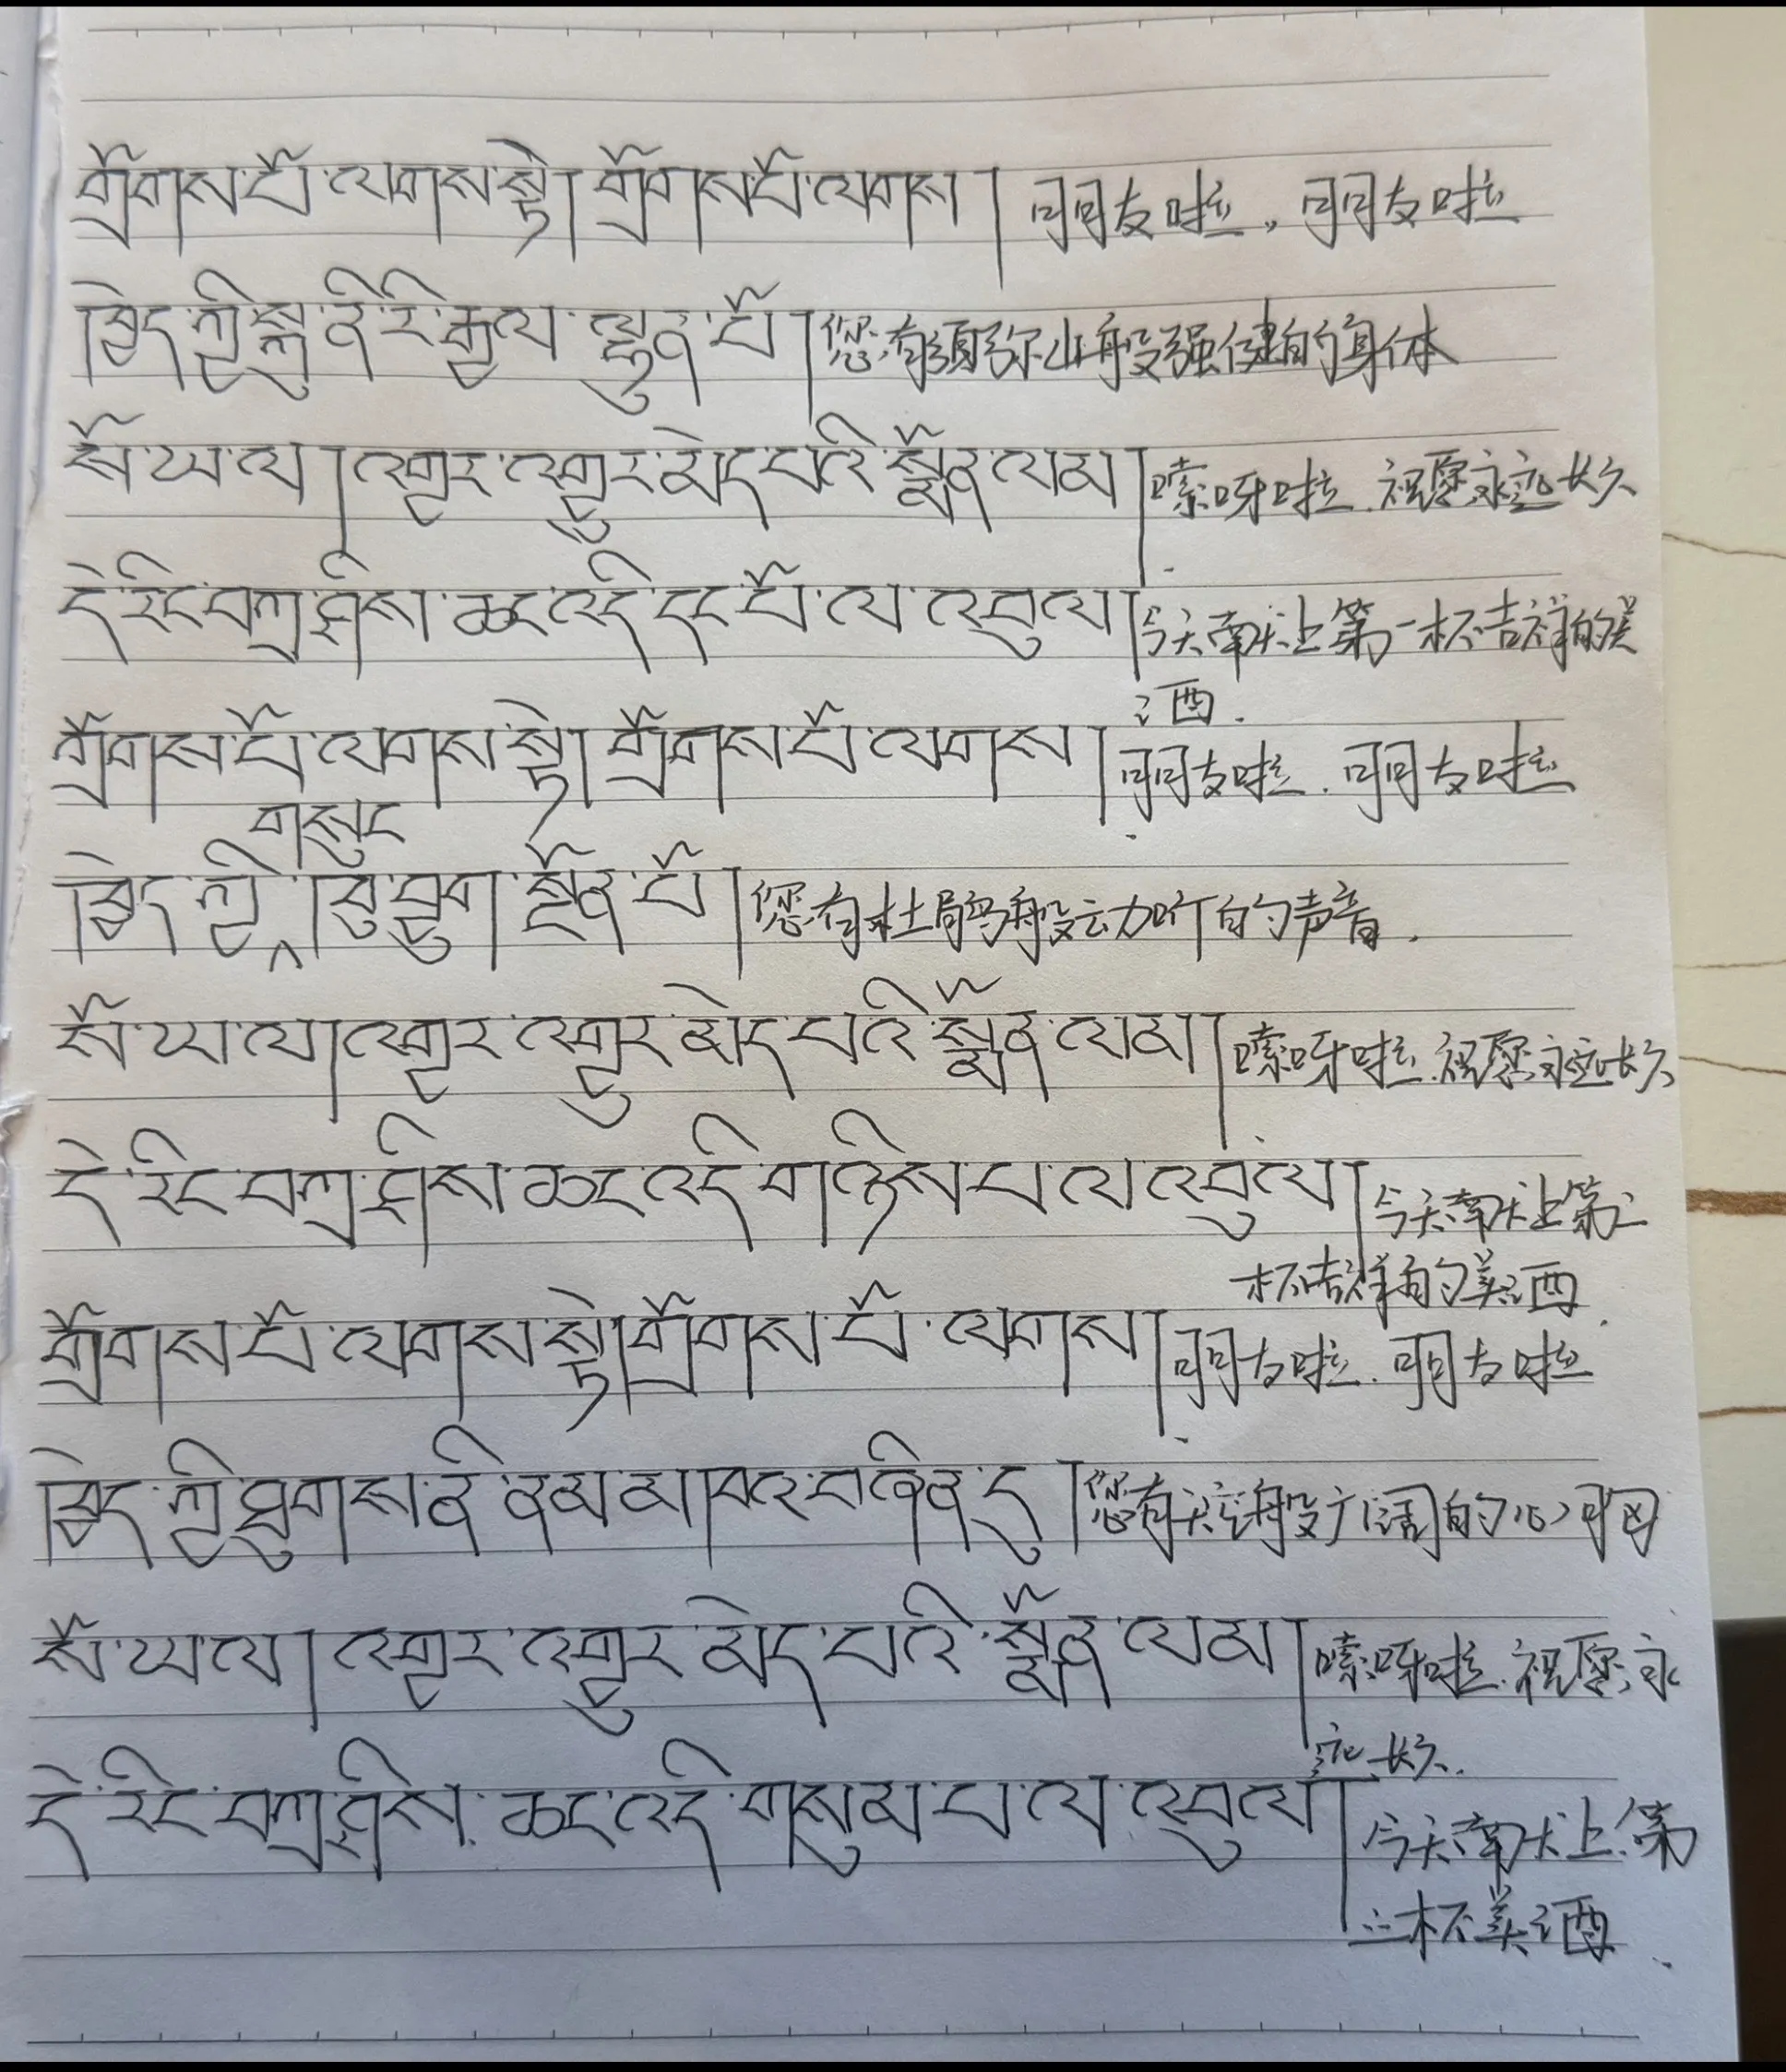 གྲོགས་པོ་ལགས་སྟེ། གྲོགས་པོ་ལགས། 朋友啦，朋友啦
ཁྱེད་ཀྱི་སྐུ་ནི་རི་རྒྱལ་ལྷུན་པོ། 您有须弥山般强健的身体
སོ་ཡ་ལ། འགྱུར་འགྱུར་མེད་པའི་སྨོན་ལམ། 嗦呀啦.祝愿永远长久.
དེ་རིང་བཀྲ་ཤིས་ཆང་འདི་དང་པོ་ལ་འབུལ། 今天献上第一杯吉祥的美
酒.
གྲོགས་པོ་ལགས་སྟེ། གྲོགས་པོ་ལགས། 朋友啦.朋友啦.
གསུང
ཁྱེད་ཀྱི་ཁུ་བྱུག་སྔོན་པོ། 您有杜鹃鸟般动听的声音.
སོ་ཡ་ལ། འགྱུར་འགྱུར་མེད་པའི་སྨོན་ལམ། 嗦呀啦.祝愿永远长久.
དེ་རིང་བཀྲ་ཤིས་ཆང་འདི་གཉིས་པ་ལ་འབུལ། 今天献上第二
杯吉祥的美酒.
གྲོགས་པོ་ལགས་སྟེ། གྲོགས་པོ་ལགས། 朋友啦.朋友啦.
ཁྱེད་ཀྱི་ཐུགས་ནི་ནམ་མཁའ་བཞིན་དུ། 您有天空般广阔的心胸
སོ་ཡ་ལ། འགྱུར་འགྱུར་མེད་པའི་སྨོན་ལམ། 嗦呀啦.祝愿永
远长久.
དེ་རིང་བཀྲ་ཤིས་ཆང་འདི་གསུམ་པ་ལ་འབུལ། 今天献上第
三杯美酒.